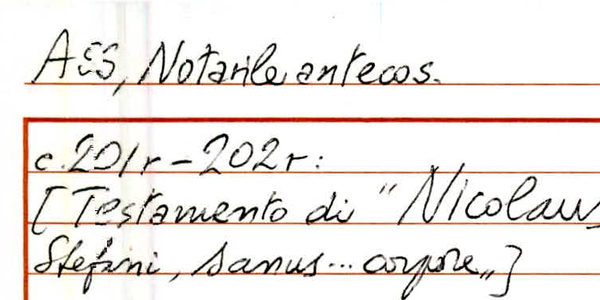 ASS, Notarile antecos.
c.201r-202r:
[Testamento di "Nicolaus
Stefani, sanus... corpore„]